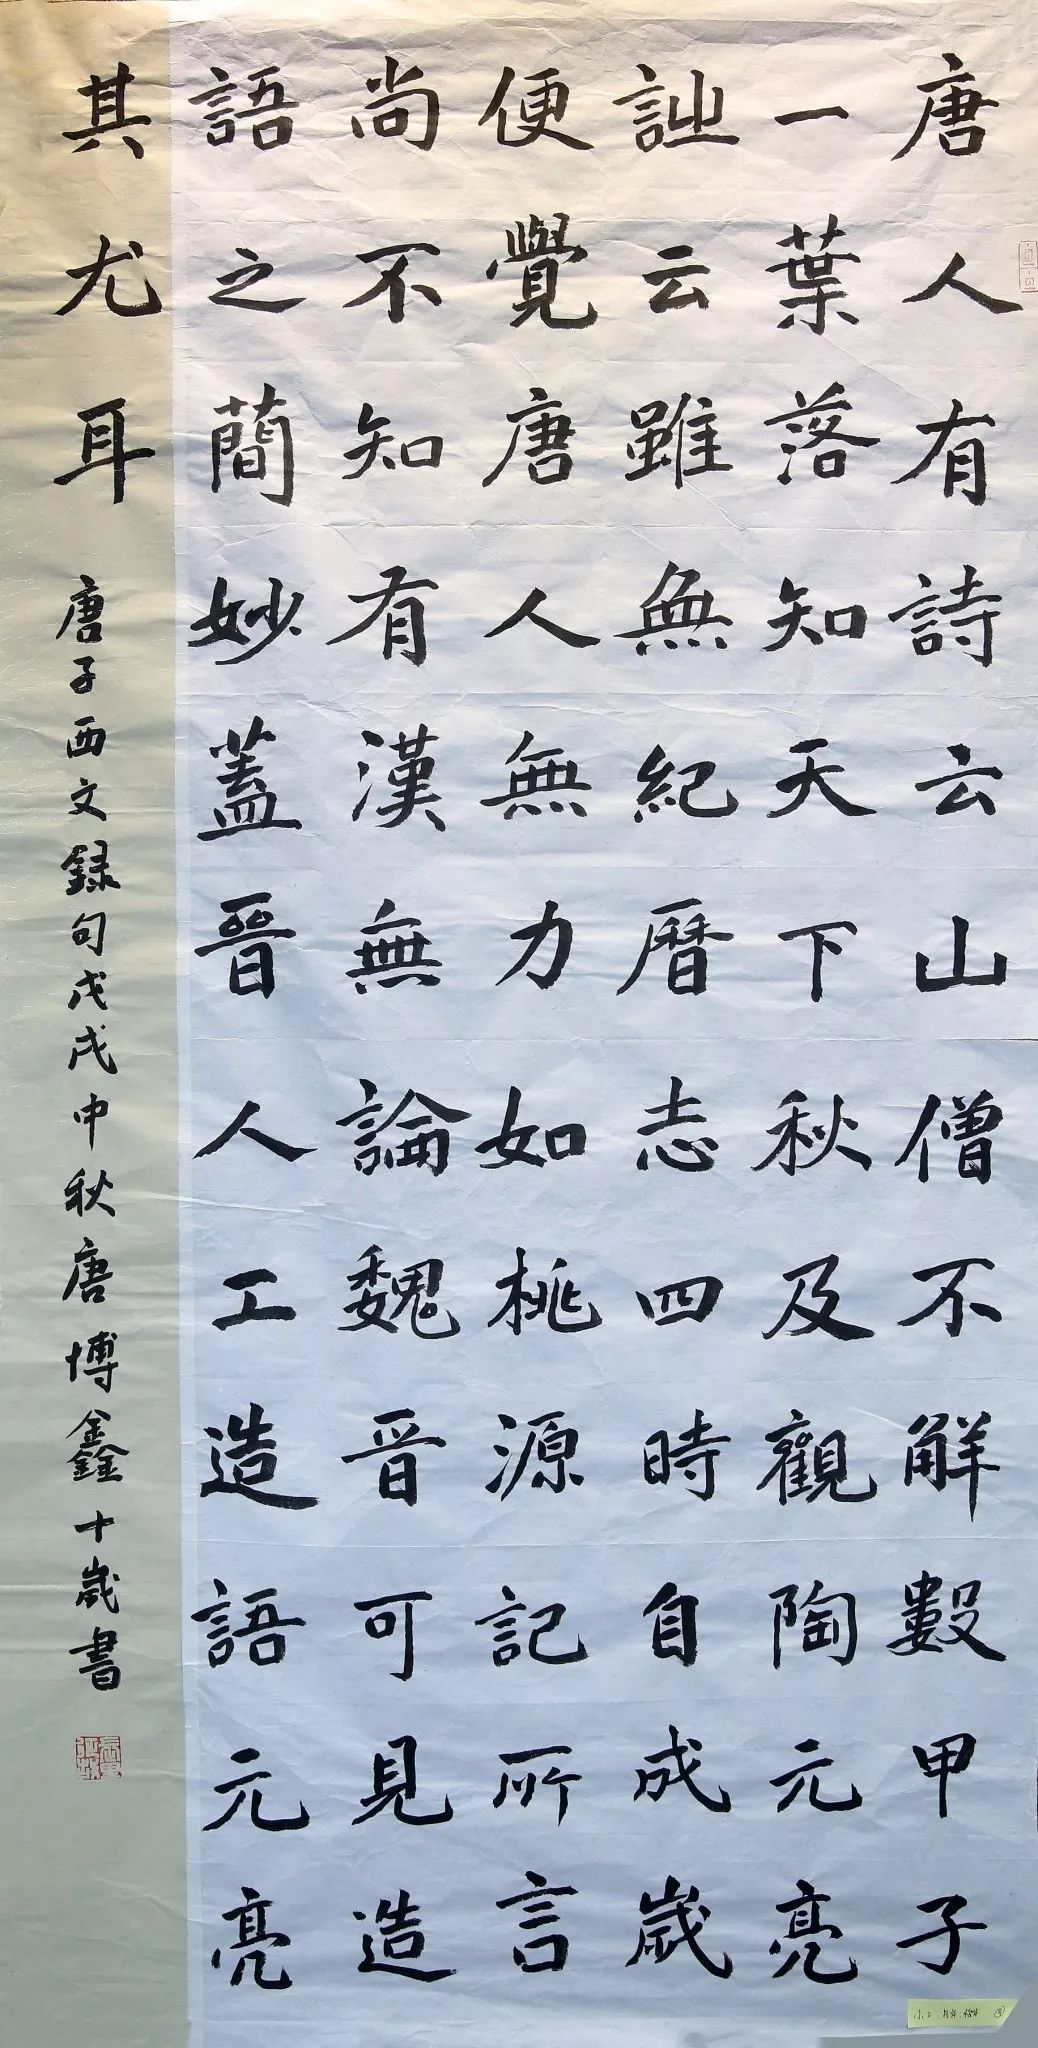 唐人有詩云山僧不解數甲子
一葉落知天下秋及觀陶元亮
詩云雖無紀曆志四時自成歲
便覺唐人無力如桃源記所言
尚不知有漢無論魏晉可見造
語之簡妙蓋晉人工造語元亮
其尤耳
唐子西文録句戊戌中秋唐博鑫十歲書